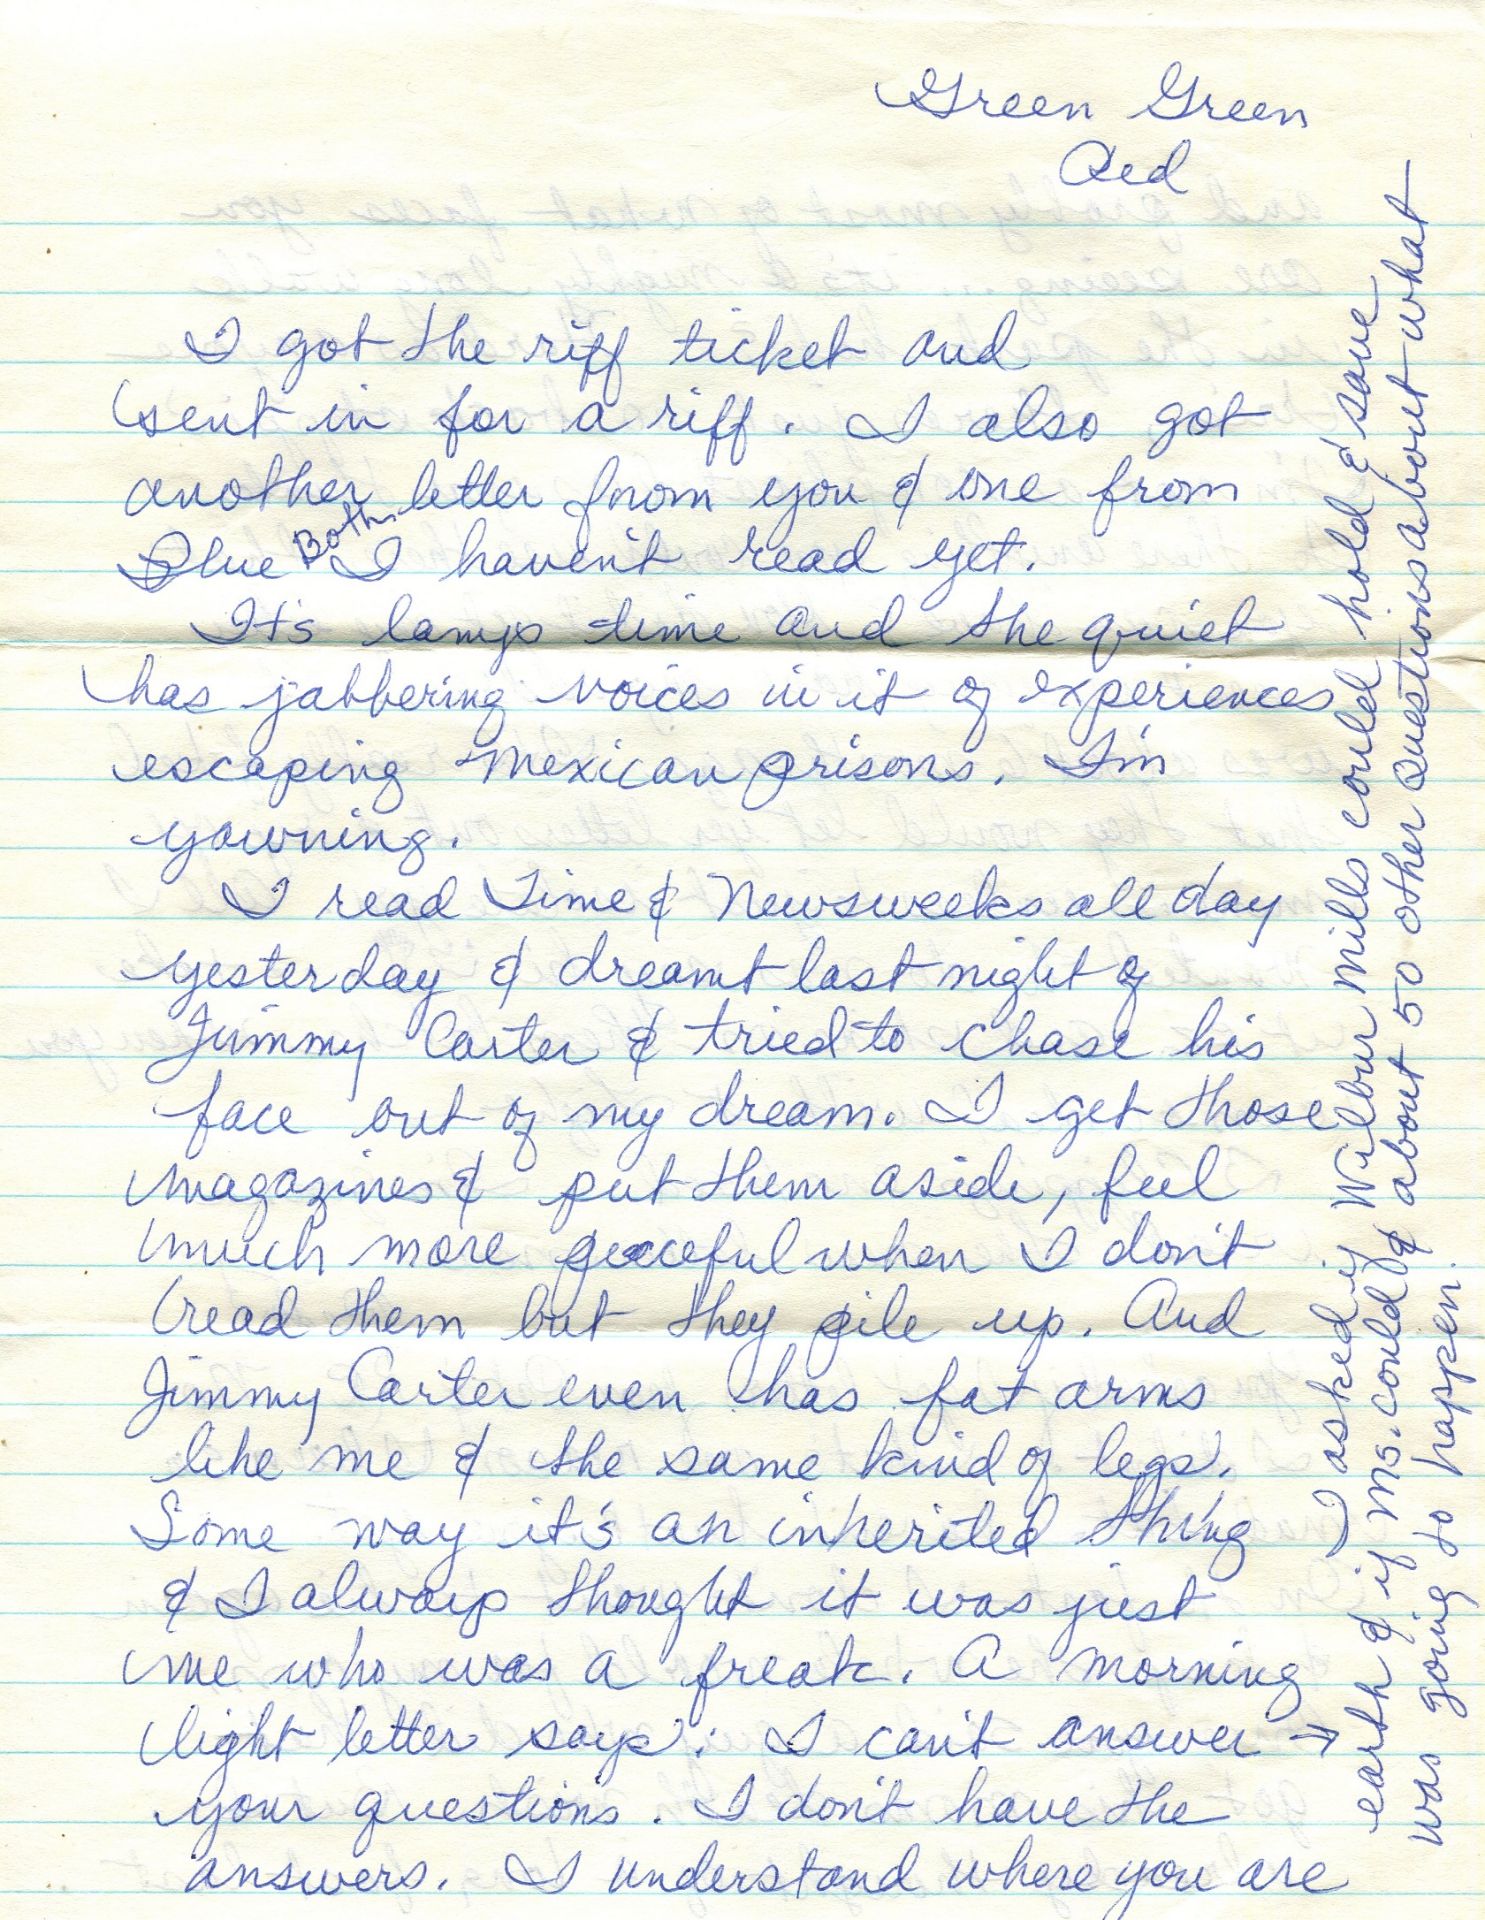 Green Green
Red
I got the riff ticket and
sent in for a riff. I also got
another letter from you & one from
Blue Both I haven't read yet.
It's lamps time and the quiet
has jabbering voices in it of experiences
escaping Mexican prisons. I'm
yawning.
I read Time & Newsweeks all day
yesterday & dreamt last night of
Jimmy Carter & tried to chase his
face out of my dream. I get those
magazines & put them aside, feel
much more peaceful when I don't
read them but they pile up. And
Jimmy Carter even has fat arms
like me & the same kind of legs.
Some way it's an inherited thing
& I always thought it was just
me who was a freak. A morning
light letter says: I can't answer →
your questions. I don't have the
answers. I understand where you are
I asked if Wilbur Mills could hold & save
earth & if Ms. could & about 50 other questions about what
was going to happen.